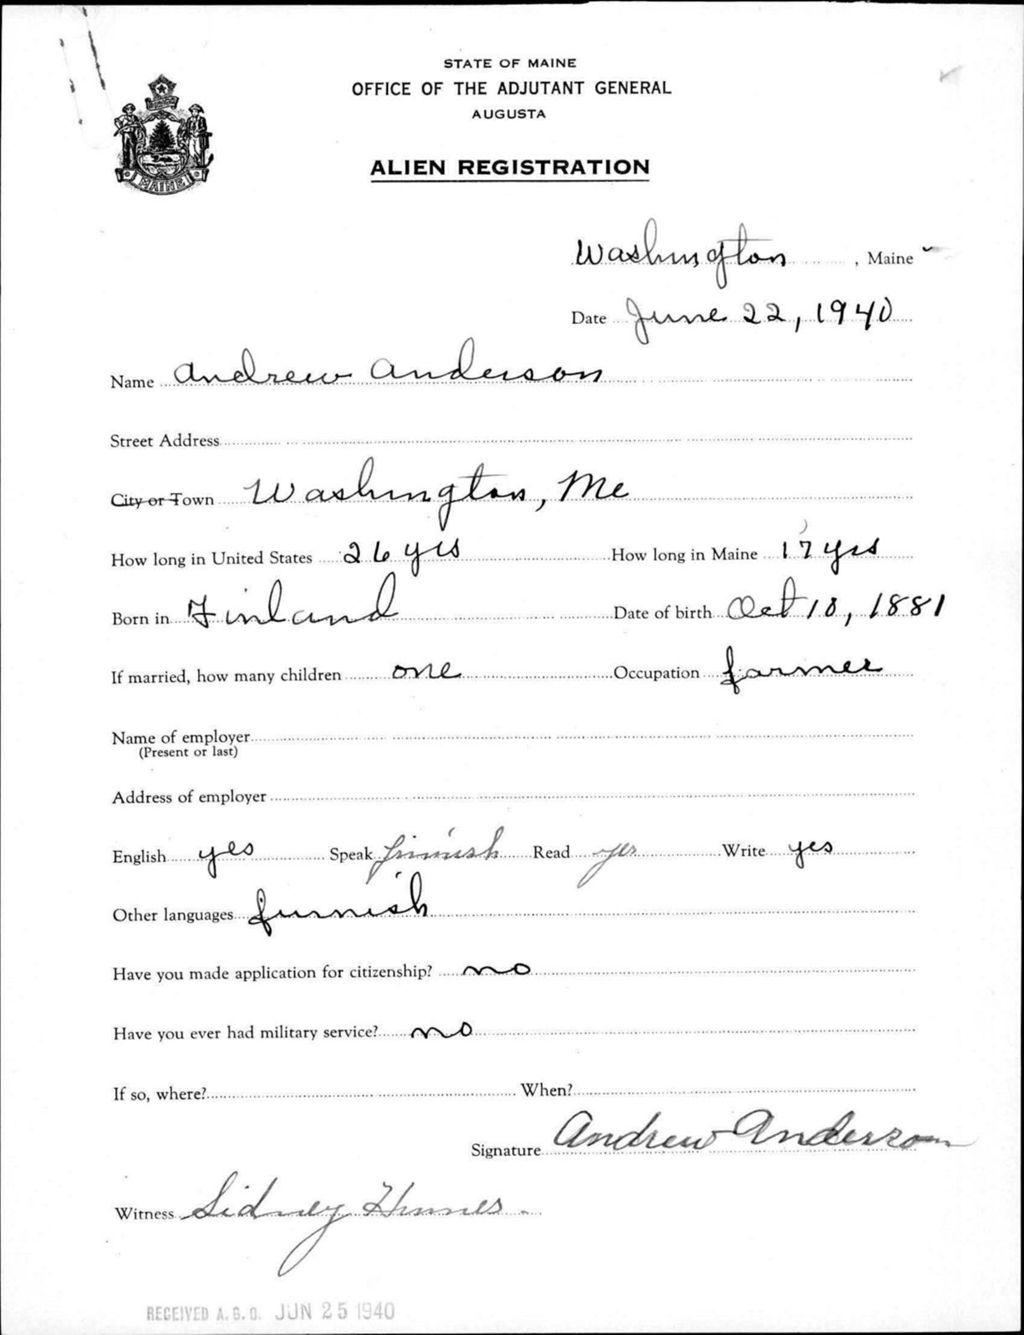 STATE OF MAINE
OFFICE OF THE ADJUTANT GENERAL
AUGUSTA
ALIEN REGISTRATION
MAINE
Washington, Maine
Date June 22, 1940
Name Andrew Anderson
Street Address
City or Town Washington, Me
How long in United States 26 yrs How long in Maine 17 yrs
Born in Finland Date of birth Oct 18, 1881
If married, how many children one Occupation farmer
Name of employer
(Present or last)
Address of employer
English yes Speak finnish Read yes Write yes
Other languages finnish
Have you made application for citizenship? no
Have you ever had military service? no
If so, where? When?
Signature Andrew Anderson
Witness Sidney
RECEIVED A.G.O. JUN 25 1940